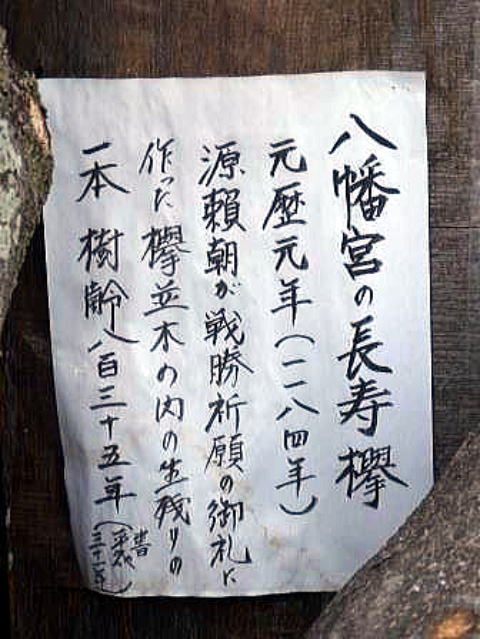 八幡宮の長寿欅
元歴元年(一一八四年)
源頼朝が戦勝祈願の御礼に
作った欅並木の内の生残りの
一本 樹齢八百三十五年(平成三十一年書)